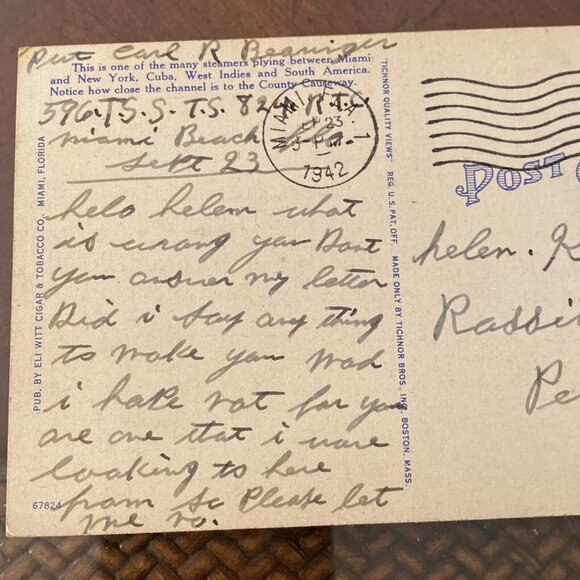 Pvt Carl R Beaniger
This is one of the many steamers plying between Miami
and New York, Cuba, West Indies and South America.
Notice how close the channel is to the County Causeway.
596. T.S.S. T.S. 825 R.T.
Miami Beach Fla
Sept 23
MIAMI, FLA. 1
SEP 23
3-PM
1942
helo helem what
is wrong you Dont
you answer my letter
Did i say any thing
to make you mad
i hope not for you
are one that i were
looking to here
from so Please let
me no.
PUB. BY ELI WITT CIGAR & TOBACCO CO., MIAMI, FLORIDA
67824
"TICHNOR QUALITY VIEWS" REG. U.S. PAT. OFF. MADE ONLY BY TICHNOR BROS., INC., BOSTON, MASS.
POST C
helen. K
Rassi
Pe